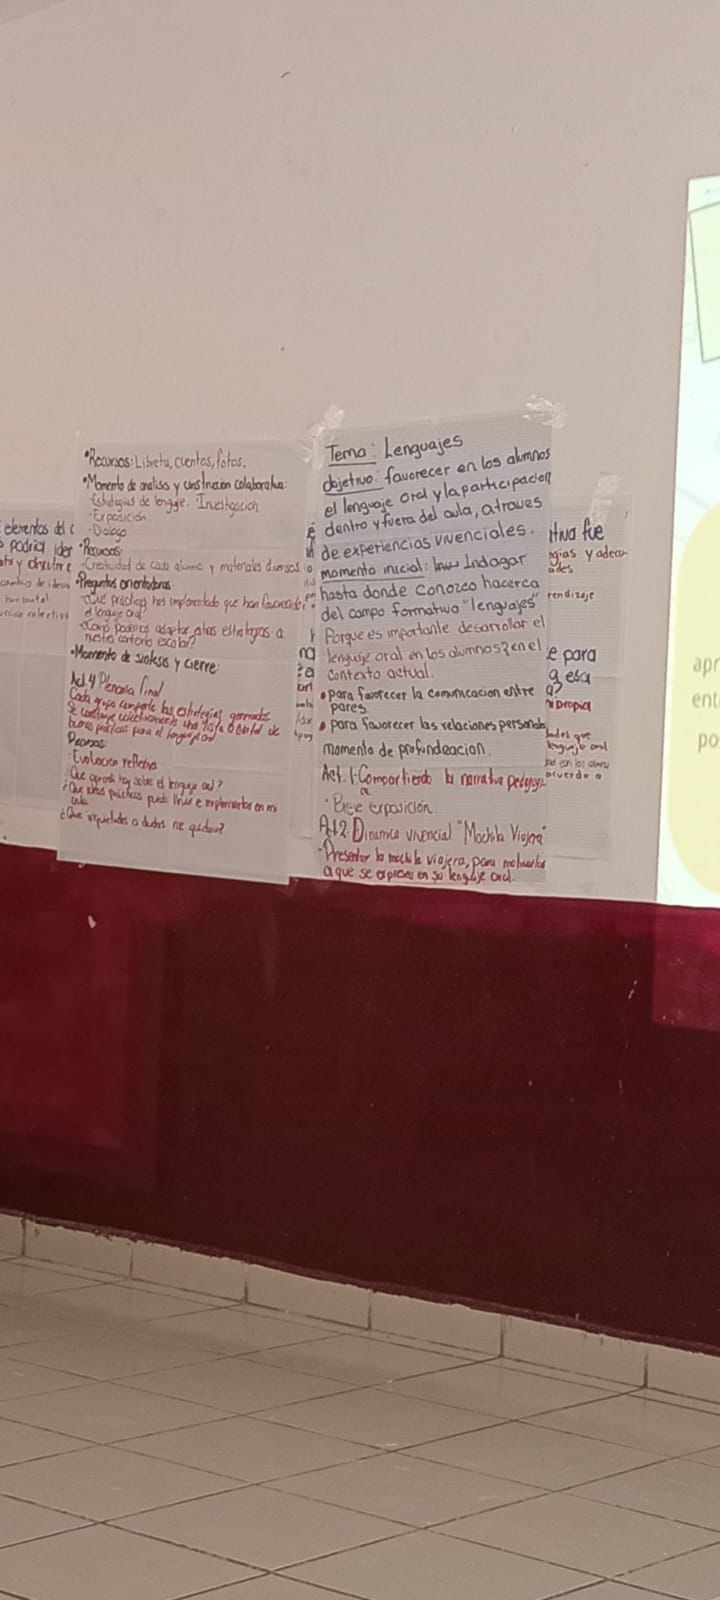 •Recursos: Libreta, cuentos, fotos.
•Momento de analisis y construcción colaborativa:
-Estrategias de lenguaje. *Investigación
-Exposición.
-Dialogo
•Recursos:
-Creatividad de cada alumno y materiales diversos.
•Preguntas orientadoras:
¿Qué prácticas has implementado que han favorecido
el lenguaje oral?
¿Cómo podemos adaptar otras estrategias a
nuestro contexto escolar?
•Momento de sintesis y cierre:
Act. 4 Plenaria final
Cada grupo comparte las estrategias generadas
Se construye colectivamente una lista o cartel de
buenas prácticas para el lenguaje oral
Recursos:
Evaluación reflexiva
¿Que aprendí hoy sobre el lenguaje oral?
¿Que ideas prácticas puedo llevar e implementar en mi
aula
¿Que inquietudes o dudas me quedan?
Tema: Lenguajes
objetivo: favorecer en los alumnos
el lenguaje oral y la participacion
dentro y fuera del aula, atraves
de experiencias vivenciales.
momento inicial: Indagar
hasta donde conozco hacerca
del campo formativo "lenguajes"
Porque es importante desarrollar el
lenguaje oral en los alumnos? en el
contexto actual.
•para favorecer la comunicacion entre
pares.
•para favorecer las relaciones personals
momento de profundeacion.
Act. 1: Compartiendo la narrativa pedagogi
ca
• Breve exposición.
Act.2: Dinamica vivencial "Mochila Viajera"
-Presentar la mochila viajera, para motivarlos
a que se expresen en su lenguaje oral.
elementos del c
podria ider
horizontal
tiva fue
gias y adecu
ades
rendizaje
e para
a esa
a?
ni propia
lenguaje oral
acuerdo a
apr
ent
po